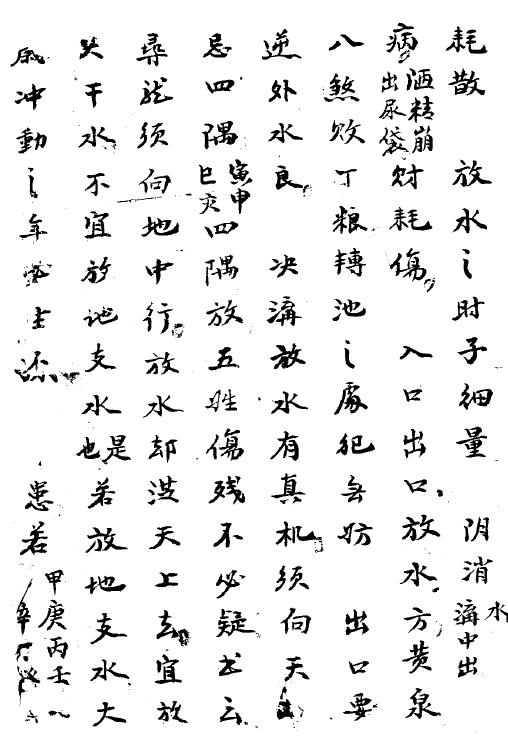 耗散 放水之时子细量 阴消水溝中出
病洒精崩出尿袋财耗傷 入口出口放水方黄泉
八煞败丁粮轉池之處犯无妨 出口要
逆外水良 决溝放水有真机须向天
忌四隅寅申巳亥四隅放五姓傷残不必疑书云
尋龙须向地中行放水却浇天上去宜放
天干水不宜放地支水是也若放地支水大
歲冲動之年必主 患若甲庚丙壬